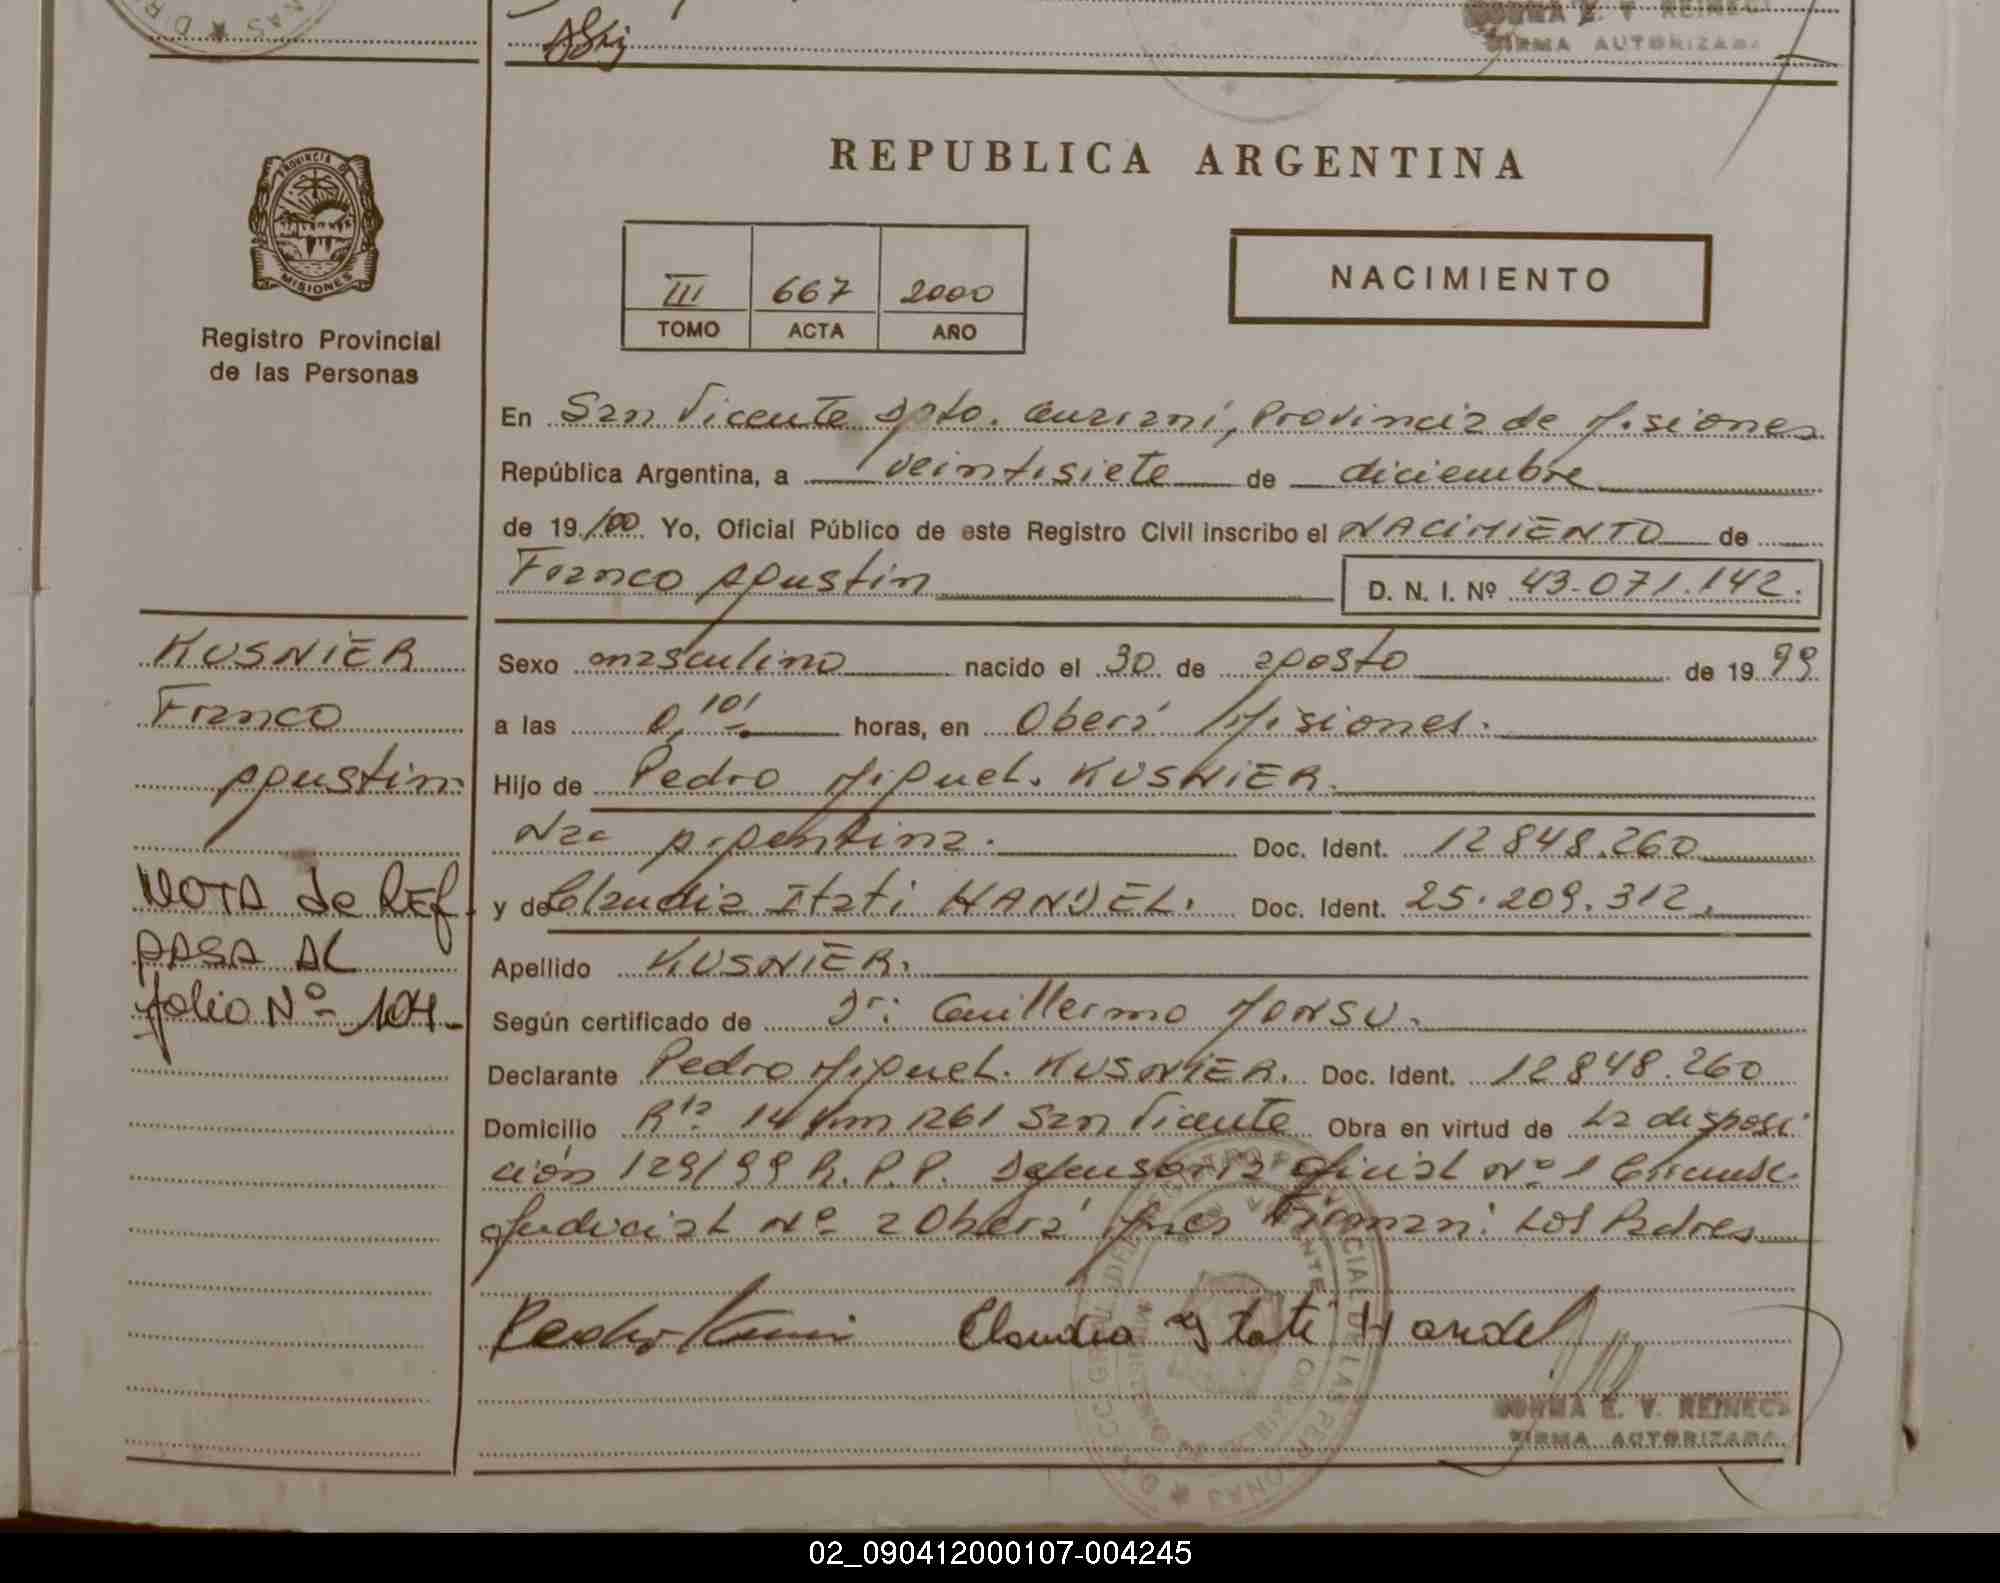 NORMA E. V. REINECK
FIRMA AUTORIZADA
REPUBLICA ARGENTINA
PROVINCIA DE
MISIONES
Registro Provincial
de las Personas
III 667 2000
TOMO ACTA AÑO
NACIMIENTO
En San Vicente Dpto. Guaraní, Provincia de Misiones
República Argentina, a veintisiete de diciembre
de 19/00. Yo, Oficial Público de este Registro Civil inscribo el NACIMIENTO de
Franco Agustin D. N. I. Nº 43.071.142.
KUSNIER
Franco
Agustin
NOTA de REF.
PASA AL
folio Nº 104.
Sexo masculino nacido el 30 de agosto de 1999
a las 0,10' horas, en Oberá Misiones.
Hijo de Pedro Miguel. KUSNIER.
Nac Argentina. Doc. Ident. 12848.260
y de Claudia Itati HANDEL. Doc. Ident. 25.209.312.
Apellido KUSNIER.
Según certificado de Dr: Guillermo
Declarante Pedro Miguel. KUSNIER. Doc. Ident. 12848.260
Domicilio Rta. 14 Km 1261 San Vicente Obra en virtud de La disposi
ción 129/99 R.P.P. Defensoria Oficial Nº 1 Circunsc.
Judicial Nº 2 Oberá Mnes Firman: Los Padres
Claudia Itati Handel
NORMA E. V. REINECK
FIRMA AUTORIZADA
02_090412000107-004245